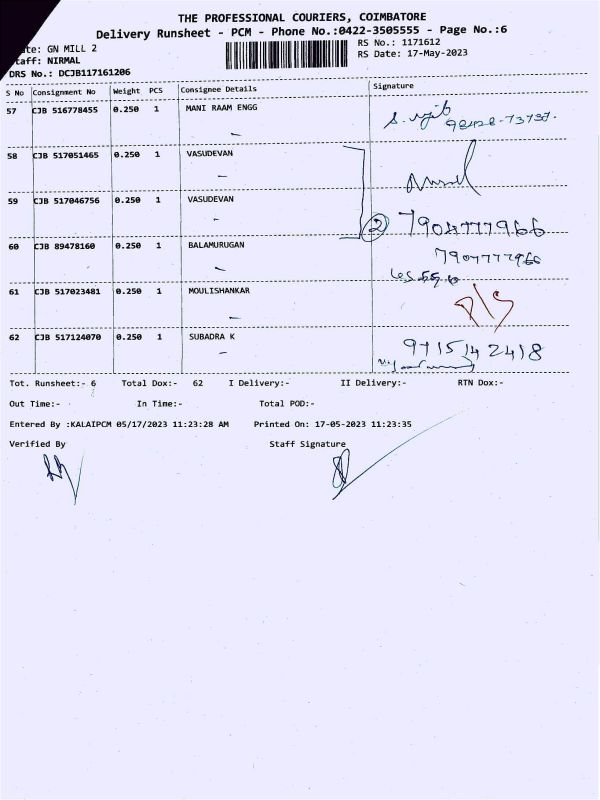 THE PROFESSIONAL COURIERS, COIMBATORE
Delivery Runsheet - PCM - Phone No.:0422-3505555 - Page No.:6
te: GN MILL 2
RS No.: 1171612
taff: NIRMAL
RS Date: 17-May-2023
DRS No.: DCJB117161206
S No Consignment No Weight PCS Consignee Details Signature
57 CJB 516778455 0.250 1 MANI RAAM ENGG
58 CJB 517051465 0.250 1 VASUDEVAN
59 CJB 517046756 0.250 1 VASUDEVAN
2 7904777966
60 CJB 89478160 0.250 1 BALAMURUGAN
7904777966
61 CJB 517023481 0.250 1 MOULISHANKAR
62 CJB 517124070 0.250 1 SUBADRA K
9715142418
Tot. Runsheet:- 6 Total Dox:- 62 I Delivery:- II Delivery:- RTN Dox:-
Out Time:- In Time:- Total POD:-
Entered By :KALAIPCM 05/17/2023 11:23:28 AM Printed On: 17-05-2023 11:23:35
Verified By Staff Signature